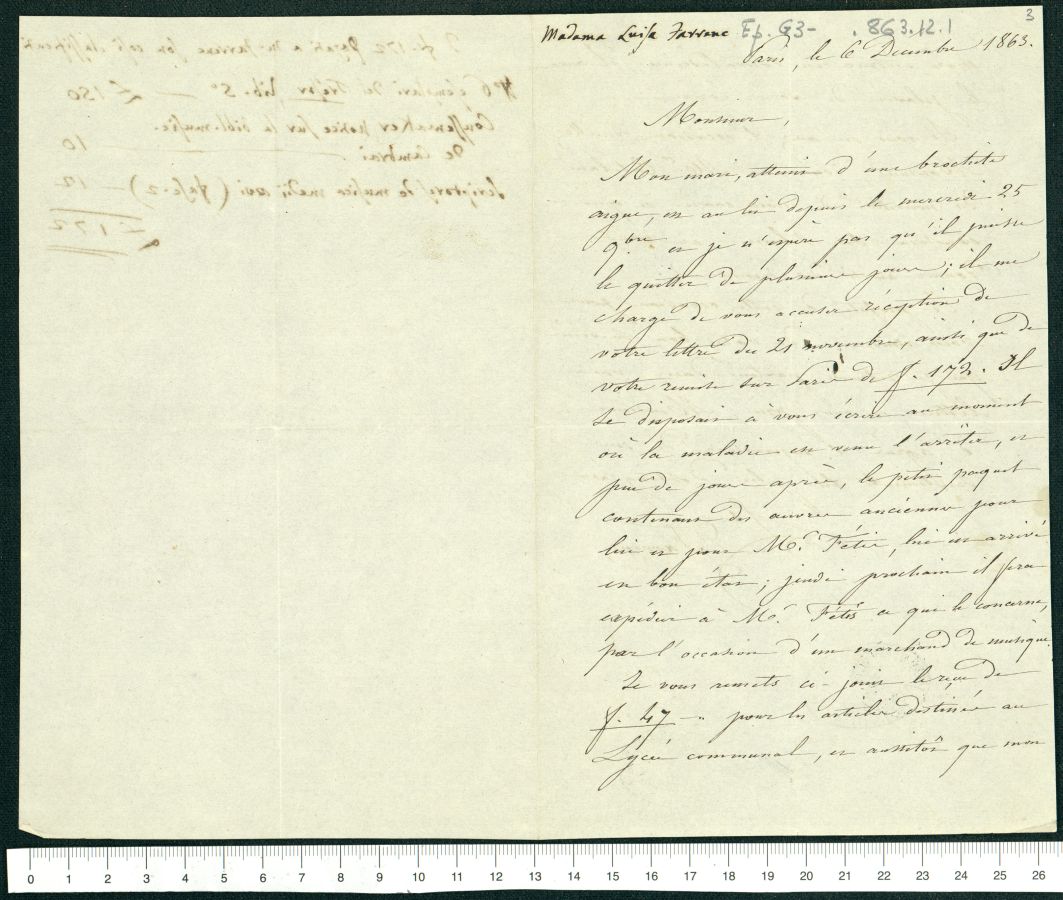 3
Madama Luisa Farrenc Ep. G3- .863.12.1
Paris, le 6 Decembre 1863.
Monsieur,
Mon mari, atteint d'une brochite
aigue, est au lit depuis le mercredi 25
9bre et je n'espère pas qu'il puisse
le quitter de plusieurs jours; il me
charge de vous accuser réception de
votre lettre du 21 novembre, ainsi que de
votre remise sur Paris de f. 172. Il
se disposait à vous écrire au moment
où la maladie est venue l'arrêter, et
peu de jours après, le petit paquet
contenant des œuvres anciennes pour
lui et pour Mr. Fétis, lui est arrivé
en bon état; jeudi prochain il sera
expédié à Mr. Fétis ce qui le concerne,
par l'occasion d'un marchand de musique.
Je vous remets ci-joint le reçu de
f. 47 -" pour les articles destinés au
Lycée communal, et aussitôt que mon
f. 172 pagati a
No 6 esemplari del Trésor, lib. 5o — £ 150
Coussemaker Notice sur la bibl. music.
de Cambrai — 10
Scriptores de musica medii aevi (fasc. 2) — 12
£ 172
0 1 2 3 4 5 6 7 8 9 10 11 12 13 14 15 16 17 18 19 20 21 22 23 24 25 26